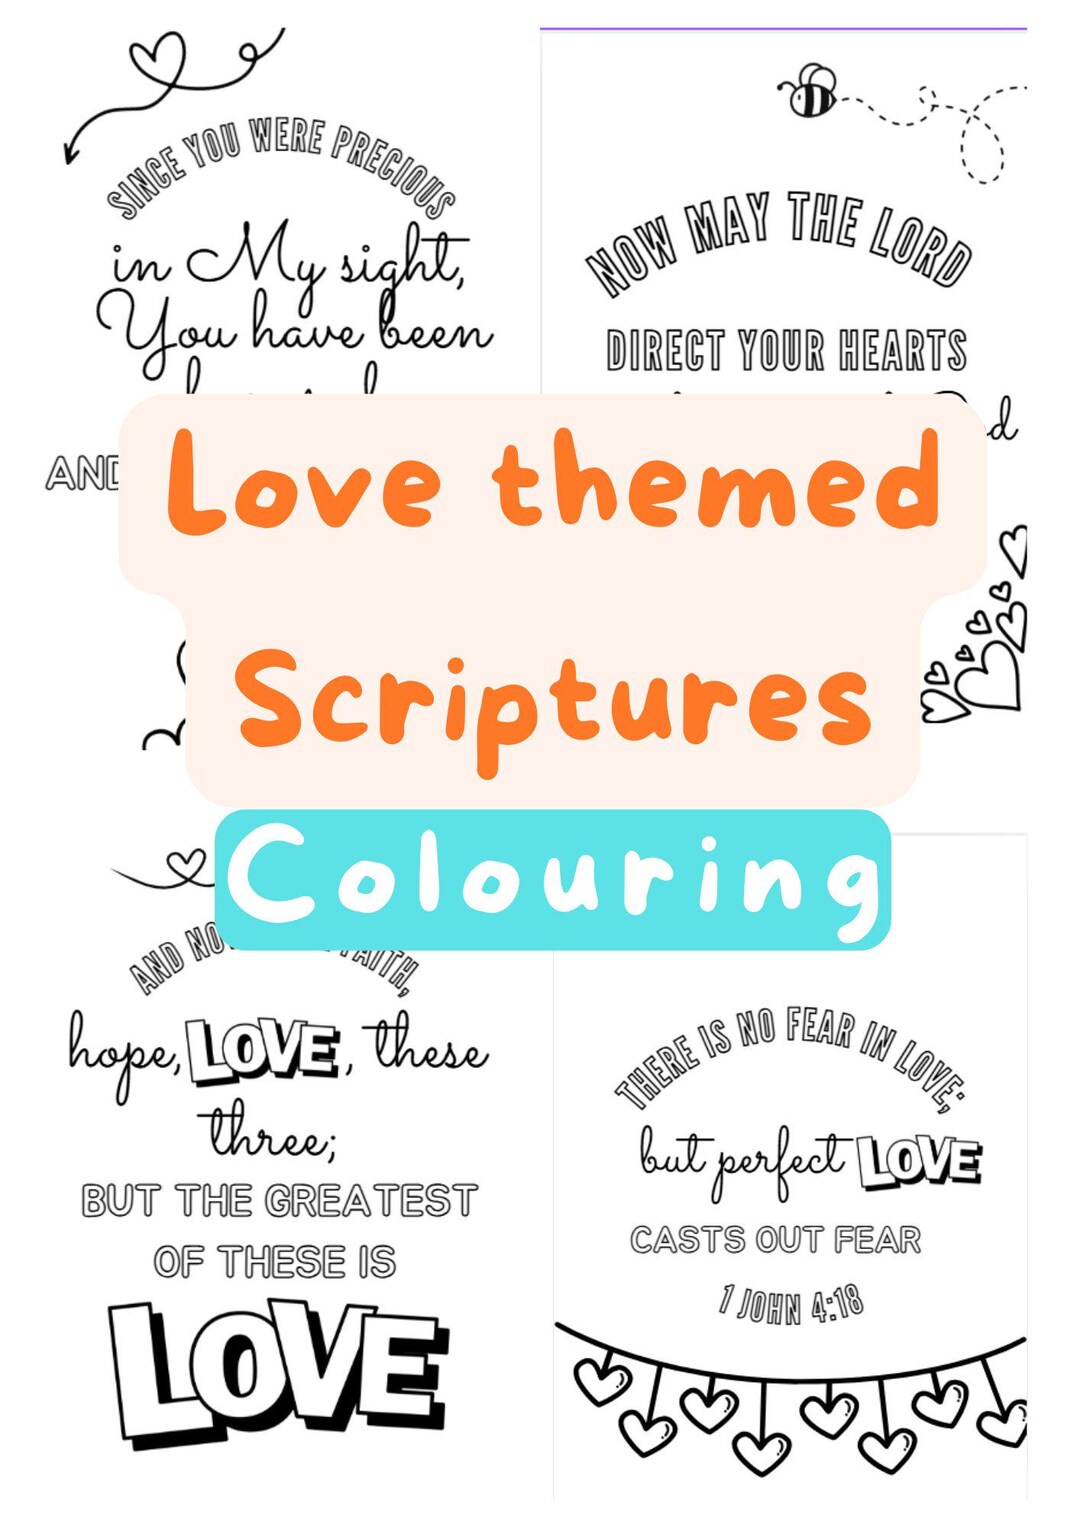 SINCE YOU WERE PRECIOUS
in My sight,
You have been
AND
NOW MAY THE LORD
DIRECT YOUR HEARTS
Love themed
Scriptures
Colouring
AND NO
FAITH,
hope, LOVE, these
three;
BUT THE GREATEST
OF THESE IS
LOVE
THERE IS NO FEAR IN LOVE;
but perfect LOVE
CASTS OUT FEAR
1 JOHN 4:18